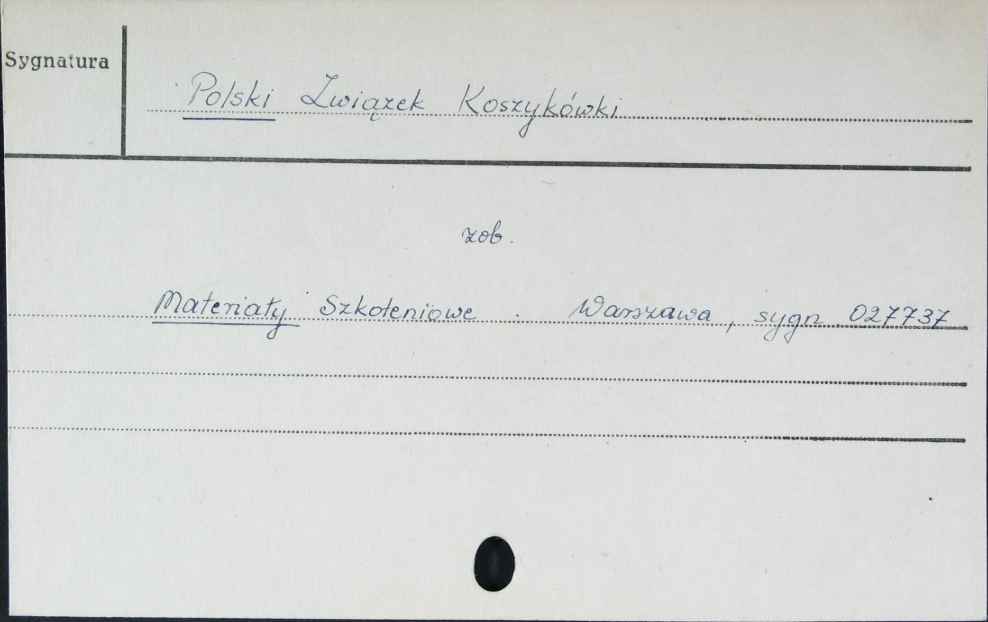 Sygnatura
Polski Związek Koszykówki
zob.
Materiały Szkoleniowe. Warszawa, sygn. 027737